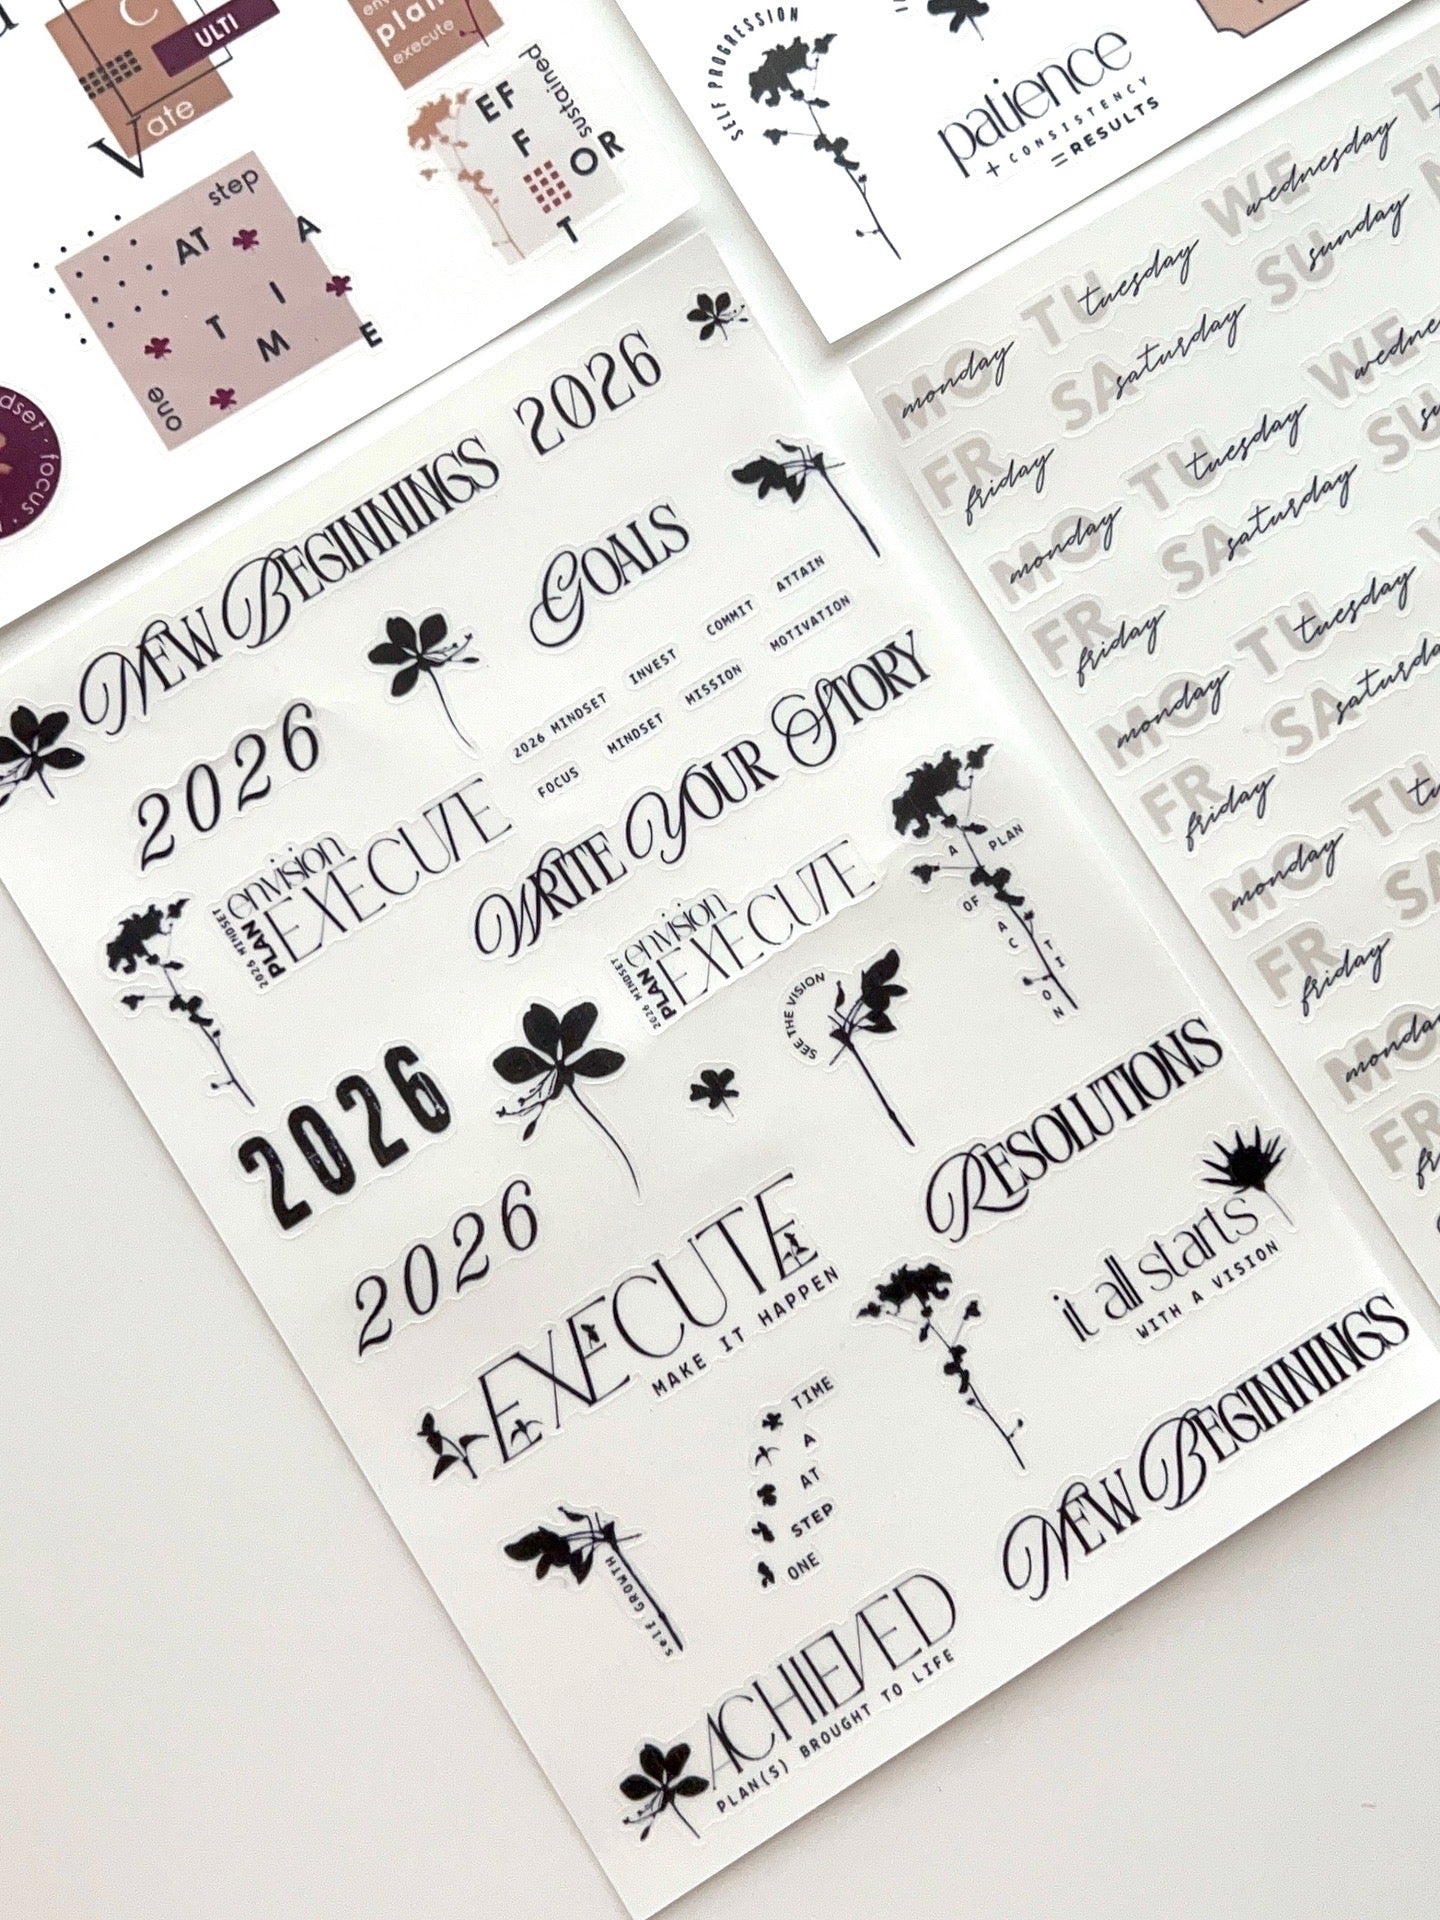 C
ULTI
V
ate
plan
execute
EFFORT
sustained
step
AT A
TIME
one
focus
SELF PROGRESSION
patience
+CONSISTENCY
=RESULTS
MO monday
TU tuesday
WE wednesday
FR friday
SA saturday
SU sunday
MO monday
TU tuesday
WE
FR friday
SA saturday
SU
MO monday
TU tuesday
FR friday
SA
MO monday
TU
FR friday
SA
FR
NEW BEGINNINGS
2026
GOALS
2026
2026 MINDSET
INVEST
COMMIT
ATTAIN
FOCUS
MINDSET
MISSION
MOTIVATION
WRITE YOUR STORY
2026 MINDSET
PLAN
envision
EXECUTE
2026 MINDSET
PLAN
envision
EXECUTE
A PLAN
OF
ACTION
SEE THE VISION
2026
2026
RESOLUTIONS
EXECUTE
MAKE IT HAPPEN
it all starts
WITH A VISION
TIME
A
AT
STEP
ONE
NEW BEGINNINGS
self GROWTH
ACHIEVED
PLAN(S) BROUGHT TO LIFE